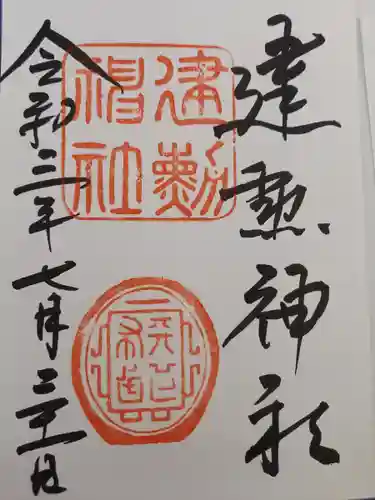 建勲神社
建勲
神社
令和三年七月二十二日